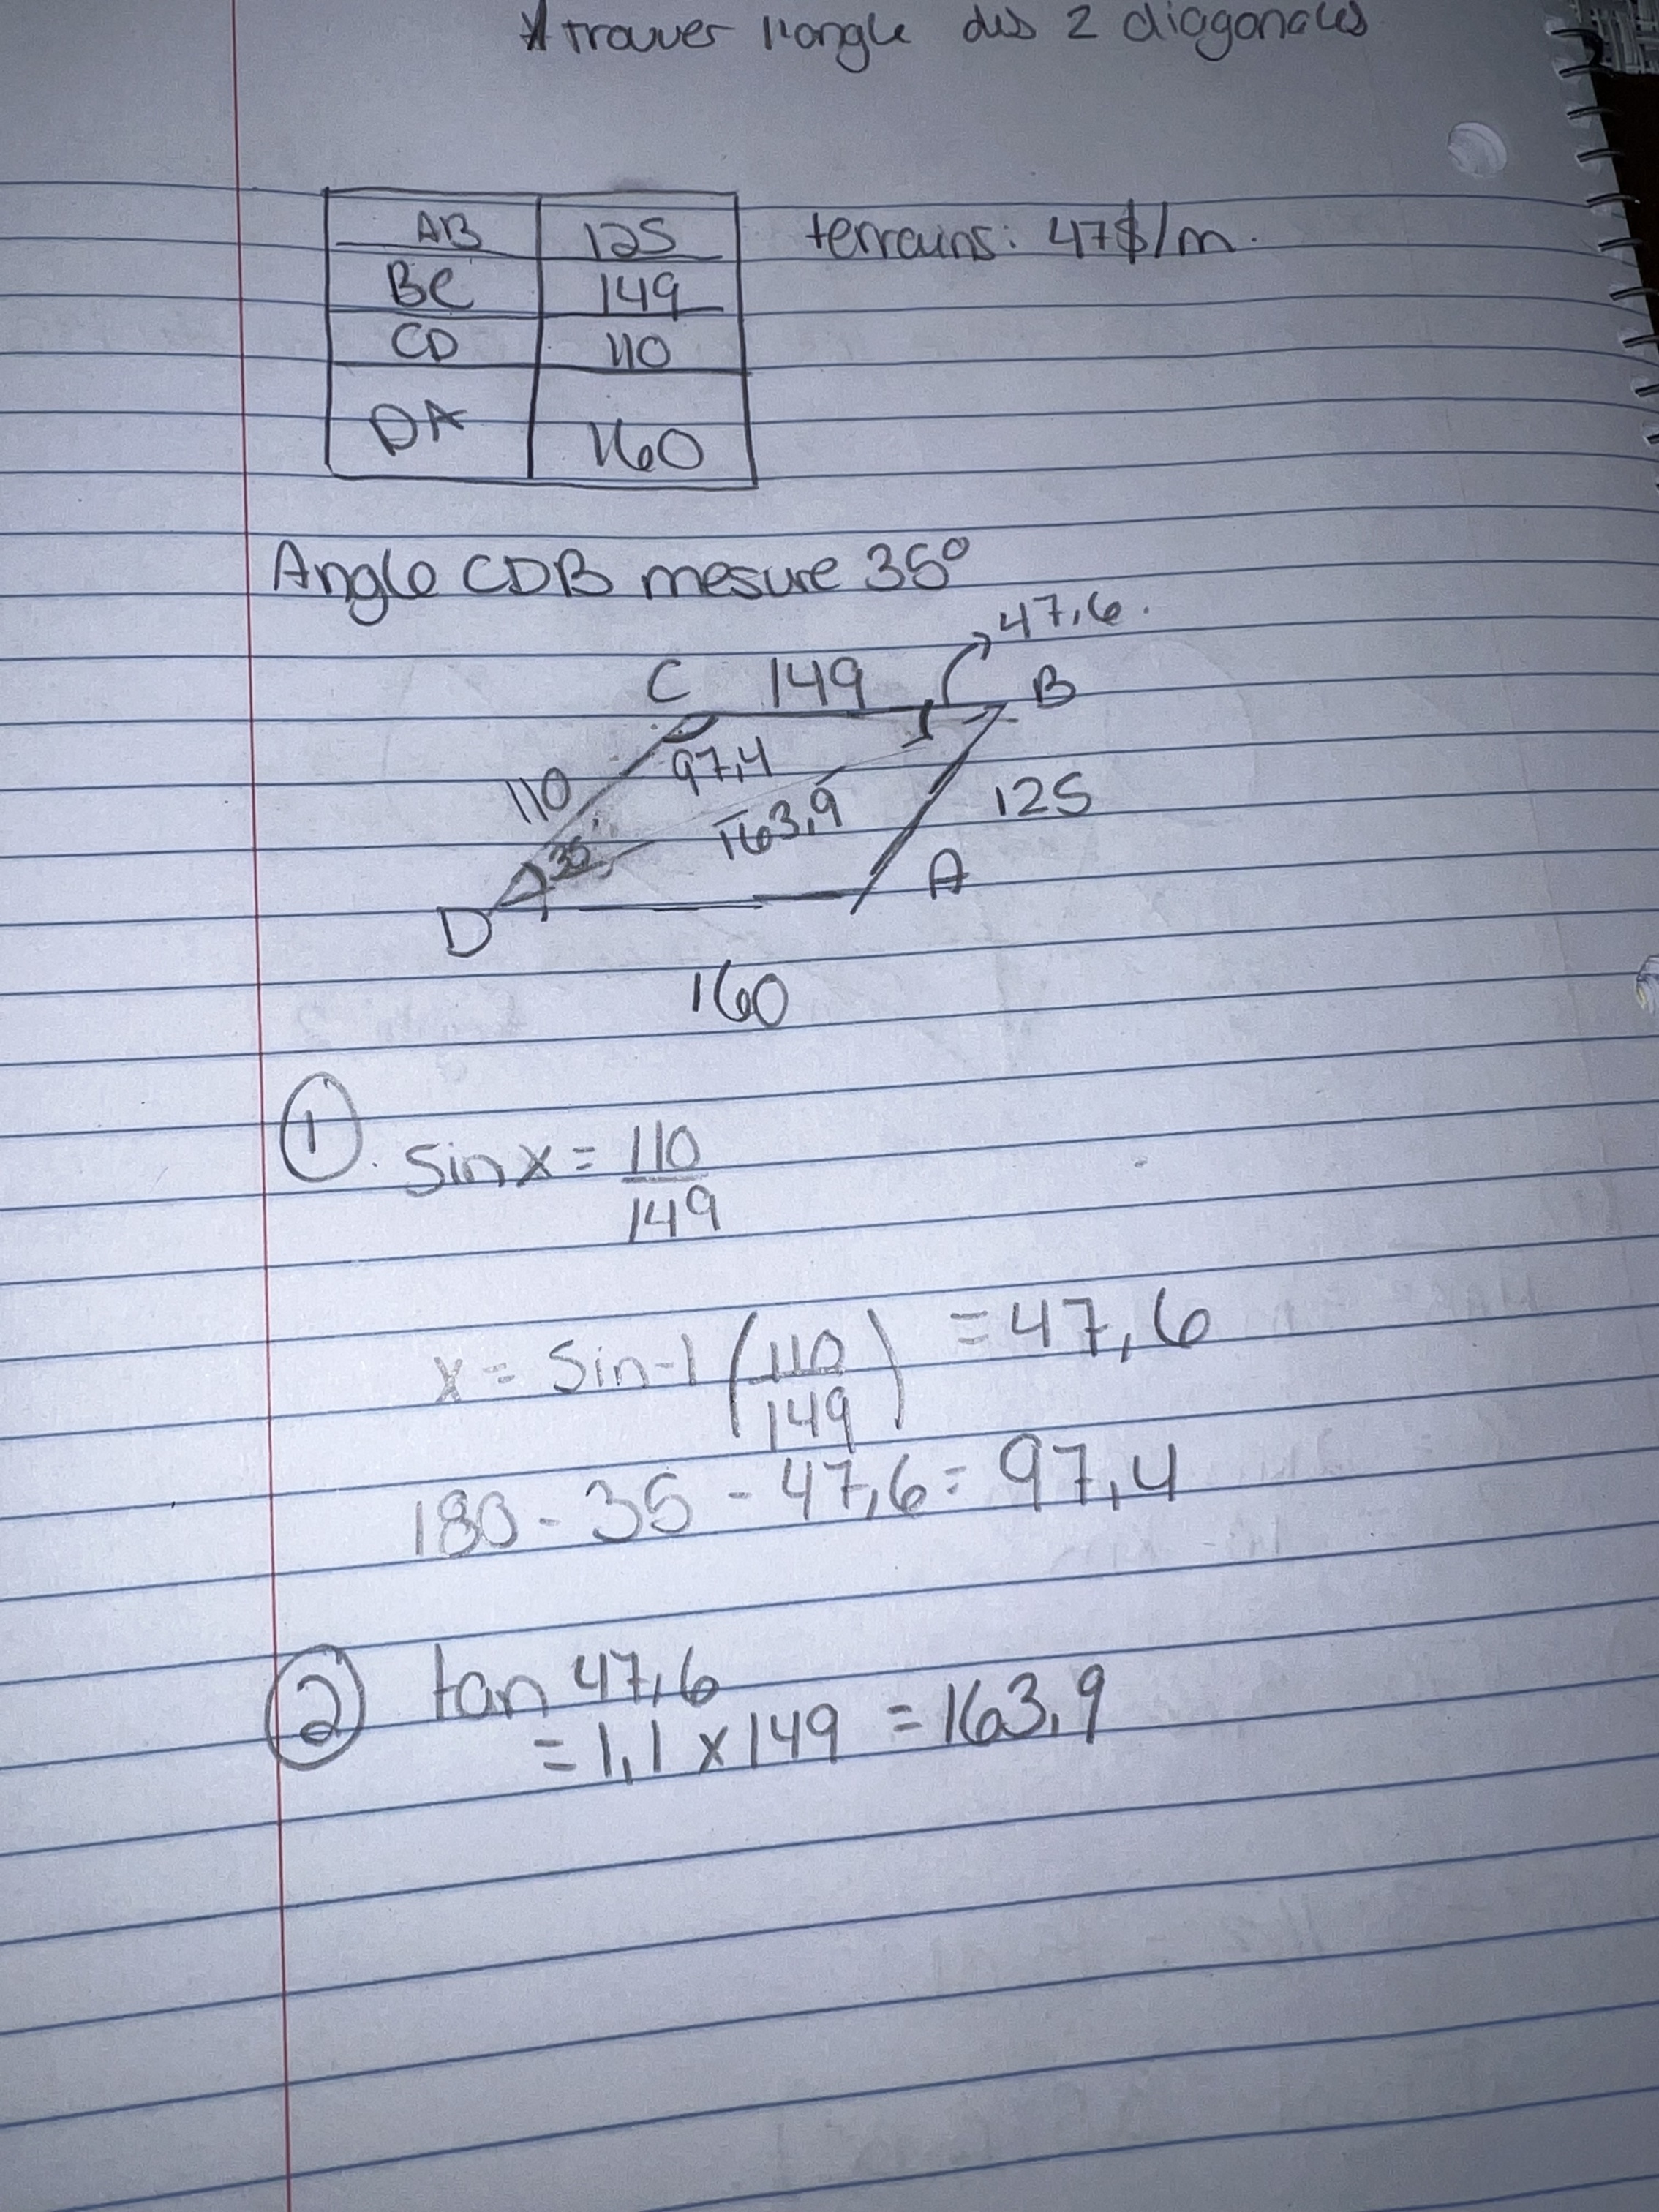 * trouver l'angle des 2 diagonales
AB 125 terrains: 47$/m.
BC 149
CD 110
DA 160
Angle CDB mesure 35°
47,6.
C 149 B
97,4
110 163,9 125
35
D A
160
① sin x = 110/149
x = sin-1 (110/149) = 47,6
180 - 35 - 47,6 = 97,4
② tan 47,6
= 1,1 x 149 = 163,9